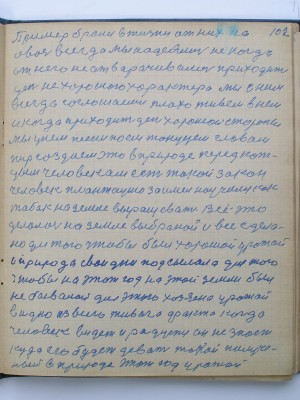 102
Пример брали в жизни от них на
своя всегда мы надеемся не когда
от него не отварачиваемся приходит
цеп не хорошого характера мы с ним
всегда соглошаемся плохо живём в нем
иногда приходит цеп хорошой стороны
мы поем песни носим танцуем словам
мир создаем это в природе перед каж
дым человекам есть такой закон
человек плантацию занимался как
табак на земле выращивать Всё это
делолось на земле выбраной и все сдела
но для того чтобы был хорошой урожай
и природа свои дни подсылала для того
чтобы на этот год на этой земле был
не бывалой для этого хозяено урожай
видно из всего живого факта когда
человек видет и радуется он не знает
куда его будет девать такой получе
ный в природе этот год урожай